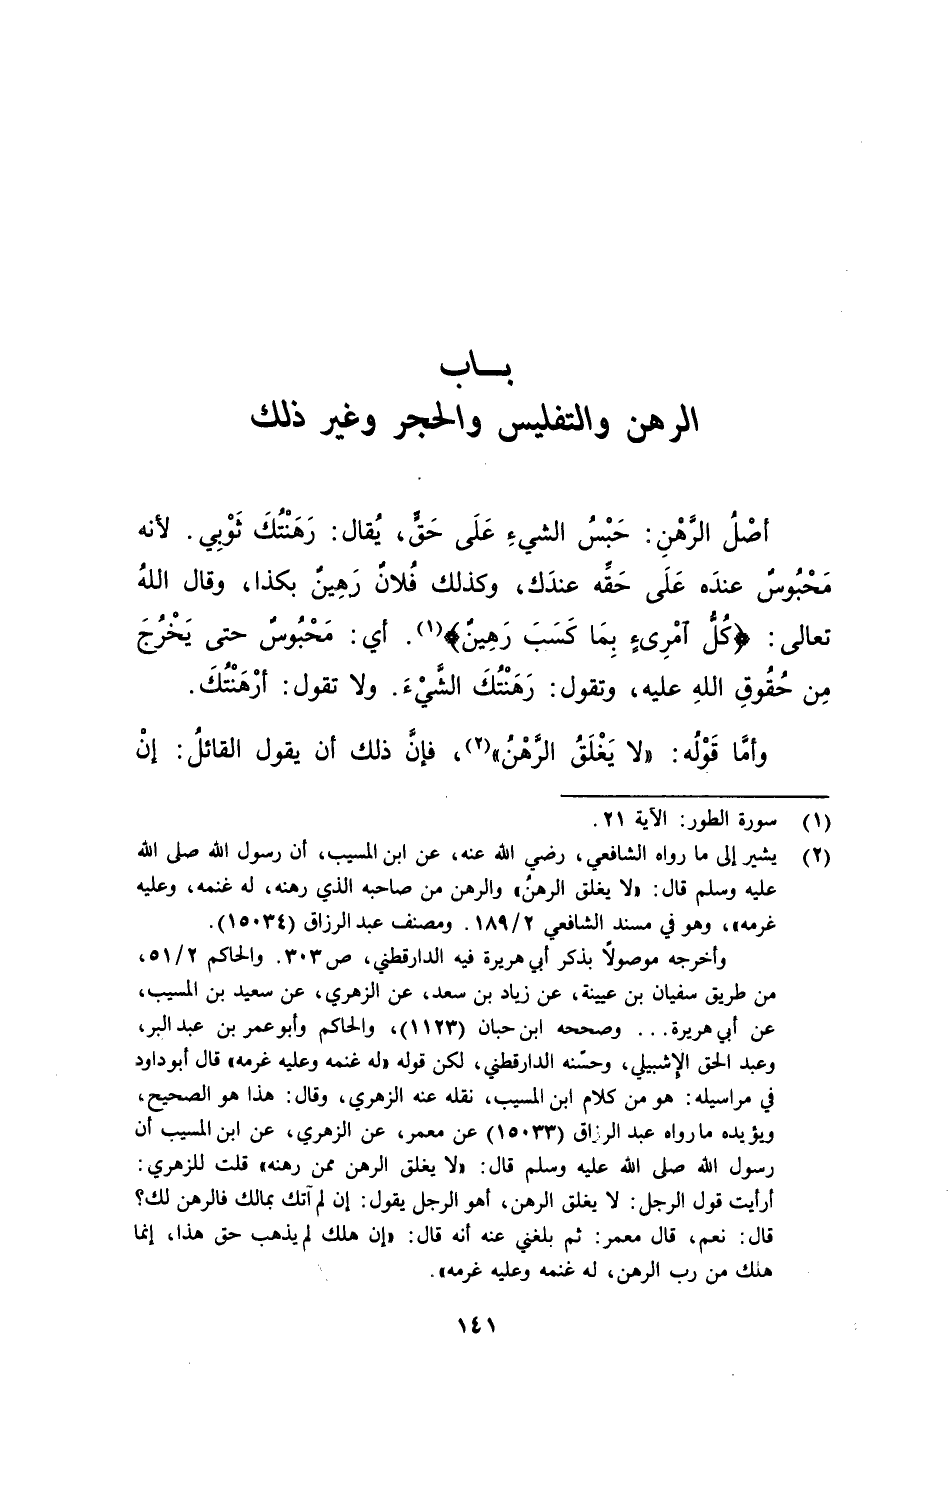 بـــاب
الرهن والتفليس والحجر وغير ذلك
أصْلُ الرَّهْنِ: حَبْسُ الشيءِ عَلَى حَقٍّ، يُقال: رَهَنْتُكَ ثَوْبِي. لأنه
مَحْبُوسٌ عندَه عَلَى حَقِّه عندَك، وكذلك فُلانٌ رَهِينٌ بكذا، وقال اللهُ
تعالى: ﴿كُلُّ آمْرِىءٍ بِمَا كَسَبَ رَهِينٌ﴾(١). أي: مَحْبُوسٌ حتى يَخْرُجَ
مِن حُقُوقِ اللهِ عليه، وتقول: رَهَنْتُكَ الشَّيْءَ. ولا تقول: أرْهَنْتُكَ.
وأمَّا قَوْلُه: «لا يَغْلَقُ الرَّهْنُ»(٢)، فإنَّ ذلك أن يقول القائلُ: إنْ
(١) سورة الطور: الآية ٢١.
(٢) يشير إلى ما رواه الشافعي، رضي الله عنه، عن ابن المسيب، أن رسول الله صلى الله
عليه وسلم قال: «لا يغلق الرهنُ» والرهن من صاحبه الذي رهنه، له غنمه، وعليه
غرمه»، وهو في مسند الشافعي ١٨٩/٢. ومصنف عبد الرزاق (١٥٠٣٤).
وأخرجه موصولاً بذكر أبي هريرة فيه الدارقطني، ص٣٠٣. والحاكم ٥١/٢،
من طريق سفيان بن عيينة، عن زياد بن سعد، عن الزهري، عن سعيد بن المسيب،
عن أبي هريرة... وصححه ابن حبان (١١٢٣)، والحاكم وأبو عمر بن عبد البر،
وعبد الحق الإشبيلي، وحسّنه الدارقطني، لكن قوله «له غنمه وعليه غرمه» قال أبو داود
في مراسيله: هو من كلام ابن المسيب، نقله عنه الزهري، وقال: هذا هو الصحيح،
ويؤيده ما رواه عبد الرزاق (١٥٠٣٣) عن معمر، عن الزهري، عن ابن المسيب أن
رسول الله صلى الله عليه وسلم قال: «لا يغلق الرهن ممن رهنه» قلت للزهري:
أرأيت قول الرجل: لا يغلق الرهن، أهو الرجل يقول: إن لم آتك بمالك فالرهن لك؟
قال: نعم، قال معمر: ثم بلغني عنه أنه قال: «إن هلك لم يذهب حق هذا، إنما
هلك من رب الرهن، له غنمه وعليه غرمه».
١٤١